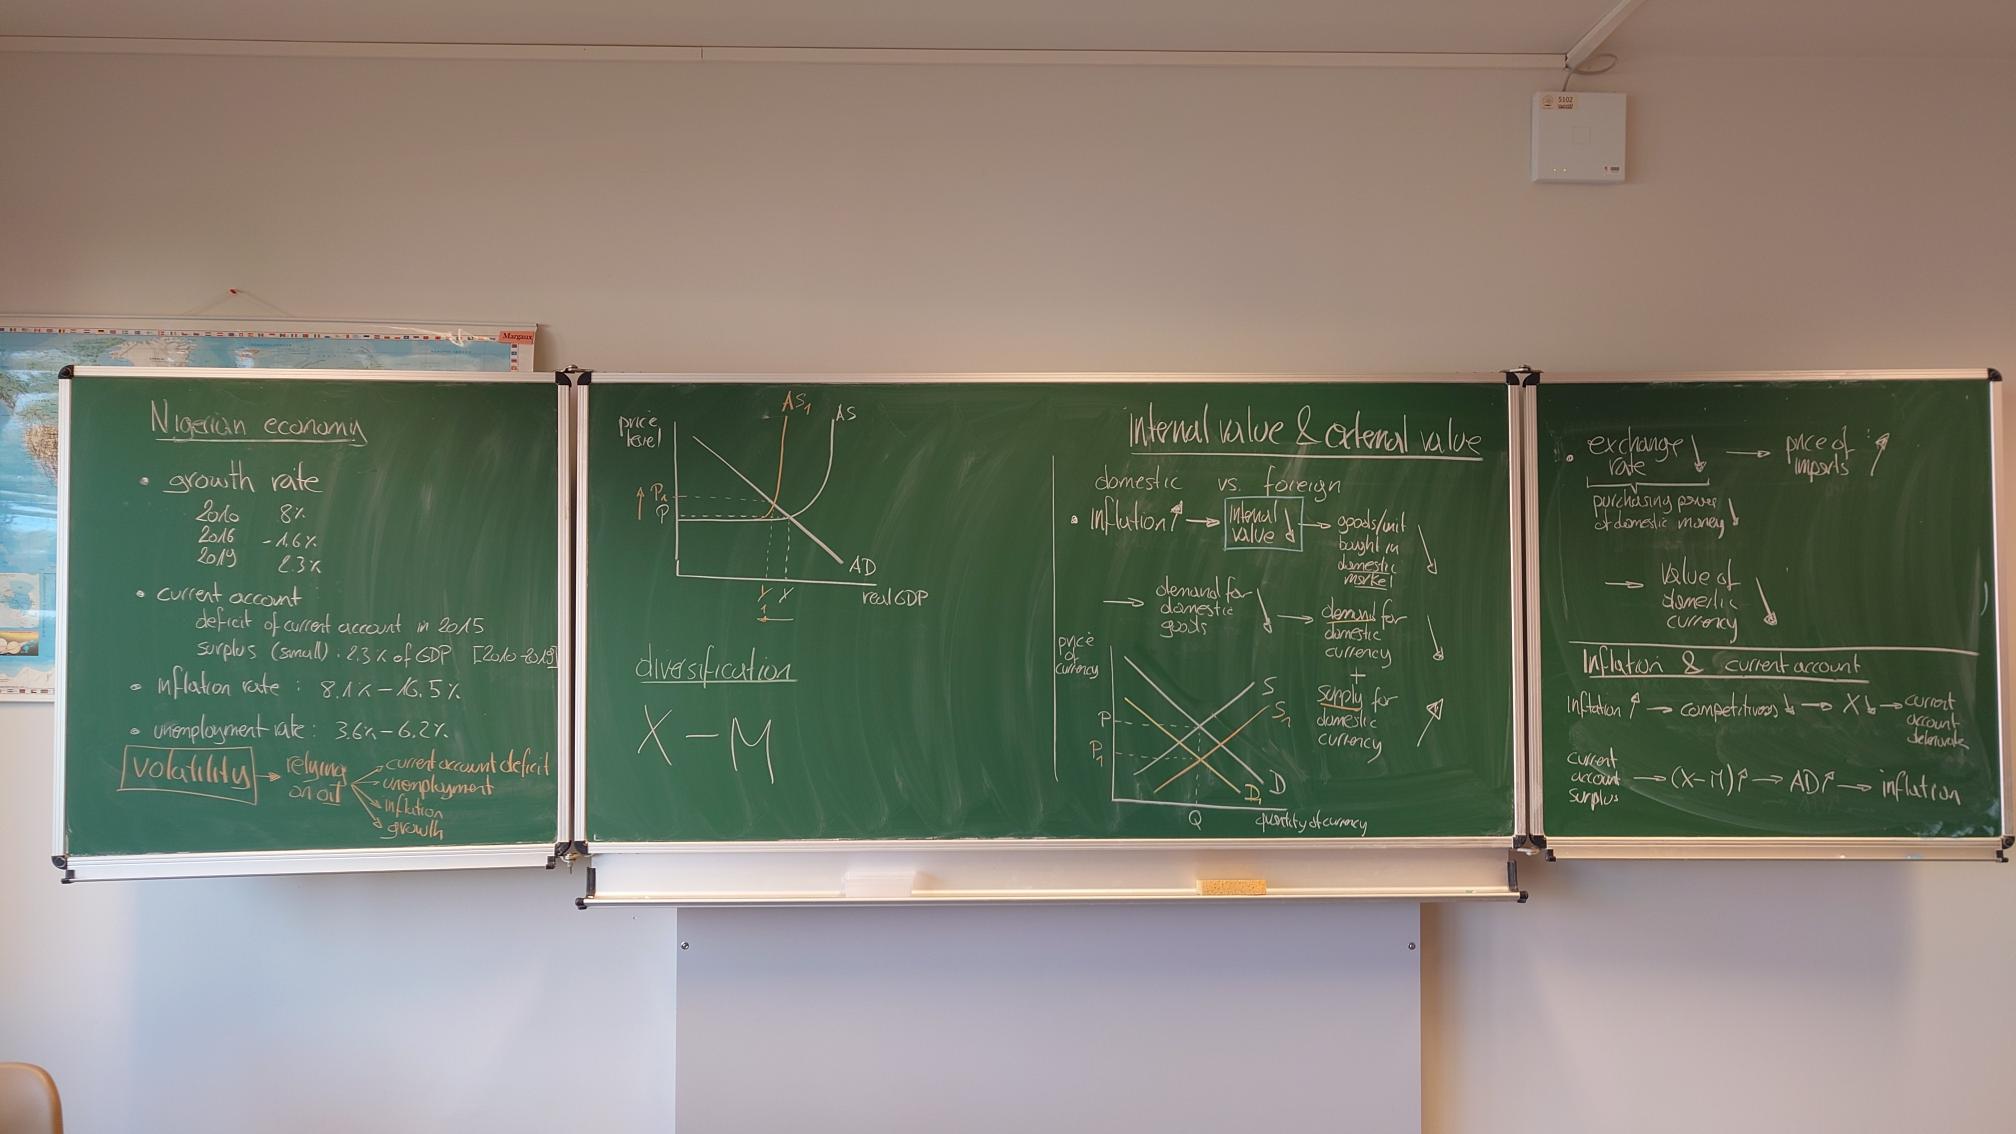 Margaux
5102
Nigerian economy
• growth rate
2010 8%
2016 -1.6%
2019 2.3%
• current account
deficit of current account in 2015
surplus (small): 2.3% of GDP [2010-2019]
• inflation rate : 8.1% - 16.5%
• unemployment rate: 3.6% - 6.2%
volatility → relying on oil
current account deficit
unemployment
inflation
growth
price level
AS₁
AS
P₁
P
AD
Y₁ Y
real GDP
diversification
X - M
Internal value & external value
domestic vs. foreign
• inflation ↑ → internal value ↓ → goods/unit
bought in
domestic
market ↓
→ demand for
domestic
goods ↓ → demand for
domestic
currency ↓
+
supply for
domestic
currency ↑
price of currency
S
S₁
P
P₁
D
D₁
Q
quantity of currency
• exchange rate ↓ → price of imports ↑
purchasing power
of domestic money ↓
→ value of
domestic
currency ↓
Inflation & current account
Inflation ↑ → competitiveness ↓ → X ↓ → current
account
current
account
surplus → (X-M) ↑ → AD ↑ → inflation